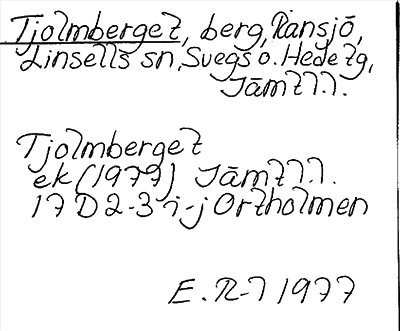 Tjolmberget, berg, Ransjö,
Linsells sn, Svegs o. Hede tg,
Jämtl.l.
Tjolmberget
ek (1977) Jämtl.l.
17 D 2-3 i-j Ortholmen
E. R-l 1977